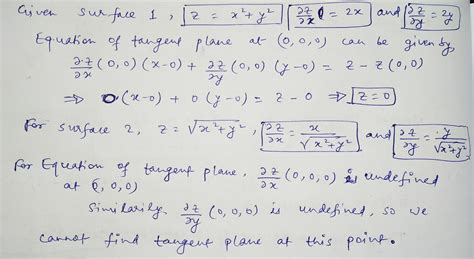 Given surface 1, z = x² + y² ∂z/∂x = 2x and ∂z/∂y = 2y
Equation of tangent plane at (0,0,0) can be given by
∂z/∂x (0,0) (x-0) + ∂z/∂y (0,0) (y-0) = z - z(0,0)
⇒ 0(x-0) + 0(y-0) = z - 0 ⇒ z = 0
For surface 2, z = √(x²+y²), ∂z/∂x = x/√(x²+y²) and ∂z/∂y = y/√(x²+y²)
For Equation of tangent plane, ∂z/∂x (0,0,0) is undefined
at (0,0,0)
Similarly ∂z/∂y (0,0,0) is undefined, so we
cannot find tangent plane at this point.